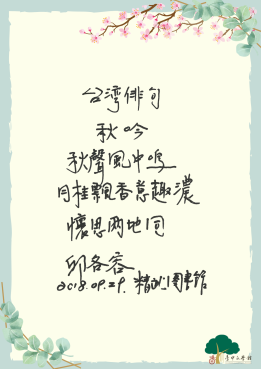 台灣俳句
秋吟
秋聲風中鳴
月桂飄香意趣濃
懷思兩地同
邱各容
2018.09.29. 精武圖書館
臺中文學館